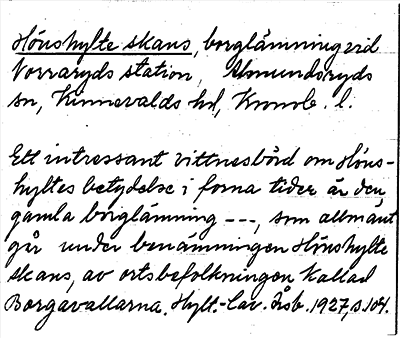 Hönshylte skans, borglämning vid
Vorraryds station, Almundsryds
sn, Kinnevalds hd, Kronob. l.
Ett intressant vittnesbörd om Höns-
hyltes betydelse i forna tider är den
gamla borglämning ---, som allmänt
går under benämningen Hönshylte
skans, av ortsbefolkningen kallad
Borgavallarna. Hylt.-Cav. Årsb. 1927, s. 104.